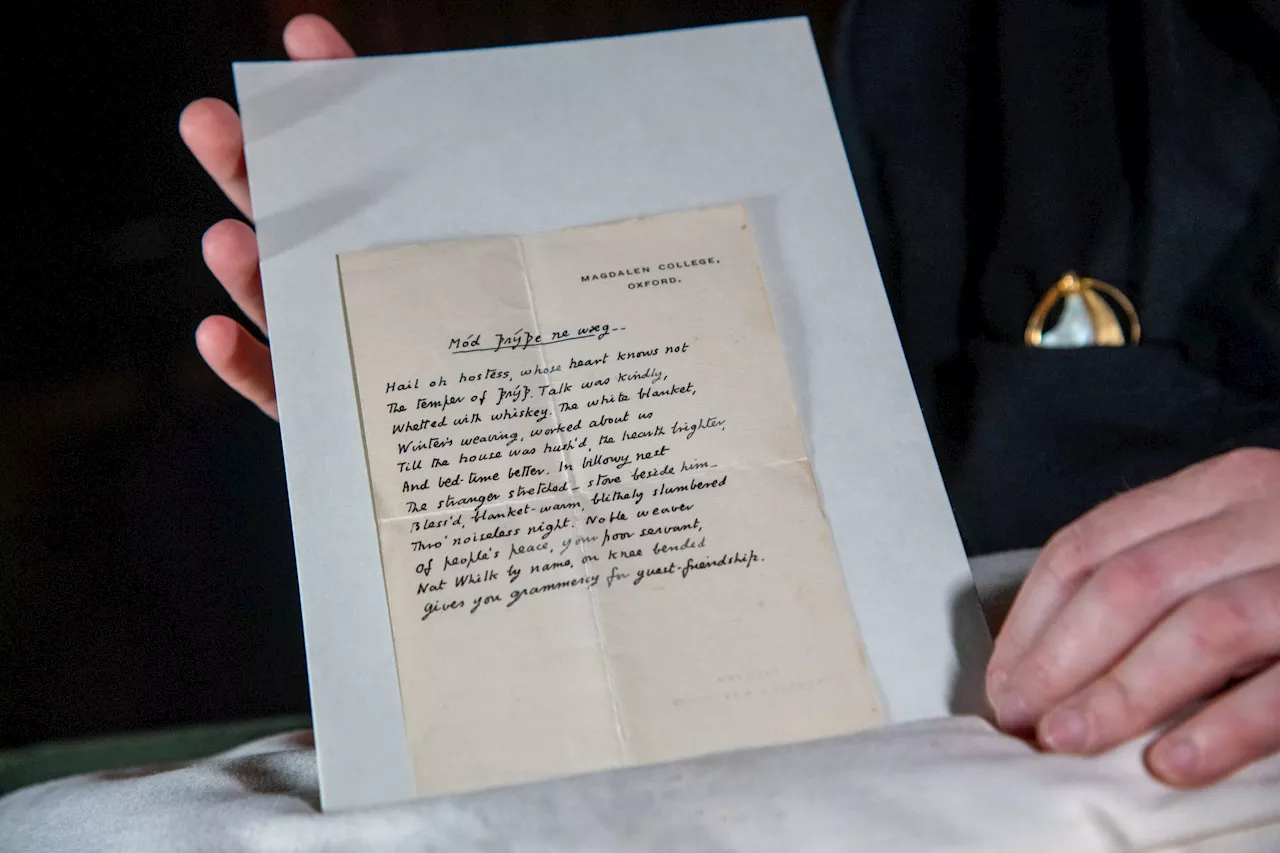 MAGDALEN COLLEGE,
OXFORD.
Mód þrýþe ne wæg--
Hail oh hostess, whose heart knows not
The temper of þrýþ. Talk was kindly,
Whetted with whiskey. The white blanket,
Winter's weaving, worked about us
Till the house was hush'd, the hearth brighter,
And bed-time better. In billowy nest
The stranger stretched – stove beside him –
Bless'd, blanket-warm, blithely slumbered
Thro' noiseless night. Noble weaver
Of people's peace, your poor servant,
Nat Whilk by name, on knee bended
Gives you grammercy for guest-friendship.